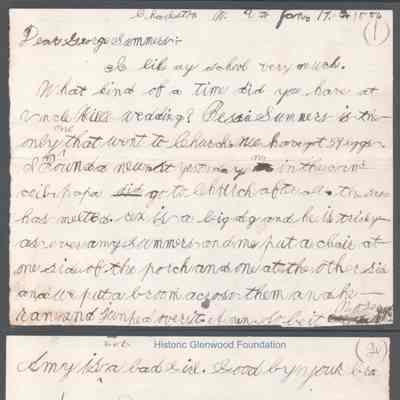 Charleston W. Va Jan. 17.
(1)
Dear George Summers:-
I like my school very much.
What kind of a time did you have at
Uncle Will's wedding? Bessie Summers is the
only one that went to Church. We have got 54 eggs.
I found a nest yesterday in the corn
papa did go to Church after all. The snow
has melted. Rex is a big dog and he is tricky
as ever amy Summers and me put a chair at
one side of the porch and one at the other side
and we put a broom across them and he
ran and jumped over it.
Historic Glenwood Foundation
(2)
Amy is a bad Girl. Good by your